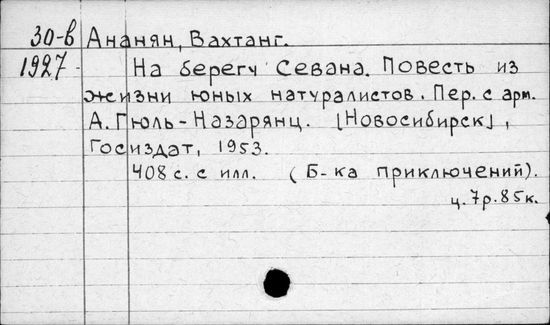 30-в Ананян, Вахтанг.
1927- На берегу Севана. Повесть из
жизни юных натуралистов. Пер. с арм.
А. Гюль-Назарянц. [Новосибирск],
Госиздат, 1953.
408 с. с илл. (Б-ка приключений).
ц. 7р. 85к.